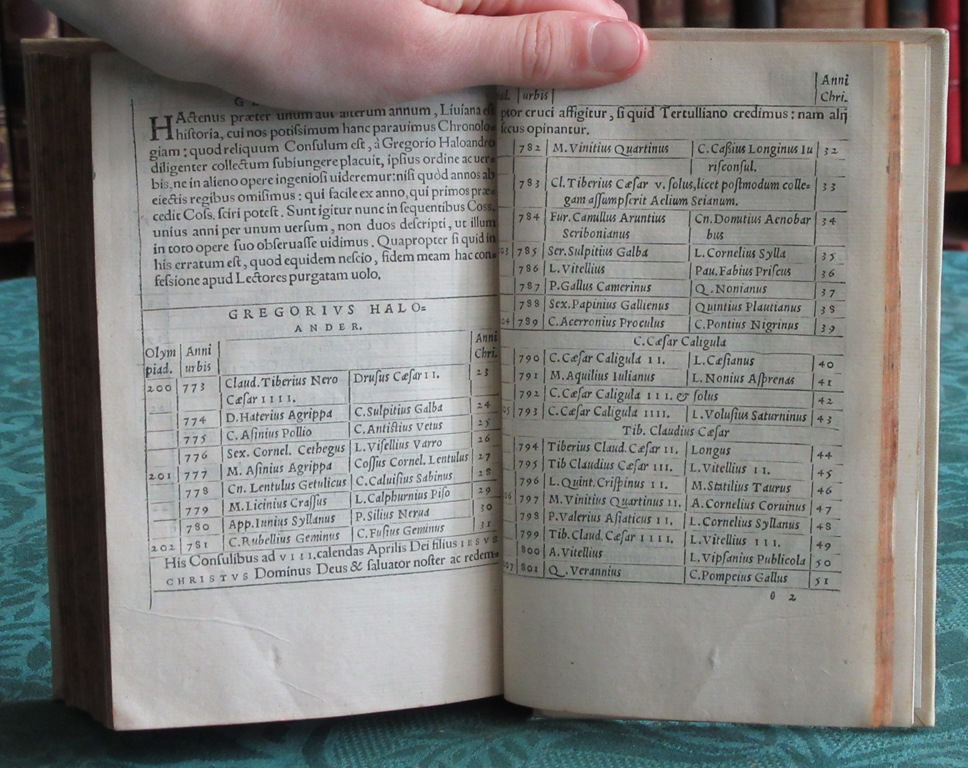 HActenus præter unum aut alterum annum, Liuiana est
historia, cui nos potissimum hanc parauimus Chronolo-
giam: quod reliquum Consulum est, à Gregorio Haloandro
diligenter collectum subiungere placuit, ipsius ordine ac uer-
bis, ne in alieno opere ingeniosi uideremur: nisi quòd annos ab
eiectis regibus omisimus: qui facile ex anno, qui primos præ-
cedit Coss. sciri potest. Sunt igitur nunc in sequentibus Coss.
unius anni per unum uersum, non duos descripti, ut illum
in toto opere suo obseruasse uidimus. Quapropter si quid in
his erratum est, quod equidem nescio, fidem meam hac con-
fessione apud Lectores purgatam uolo.
GREGORIVS HALO=
ANDER.
Olym piad. Anni urbis Anni Chri.
200 773 Claud. Tiberius Nero Drusus Cæsar II. 23
Cæsar IIII.
774 D. Haterius Agrippa C. Sulpitius Galba 24
775 C. Asinius Pollio C. Antistius Vetus 25
776 Sex. Cornel. Cethegus L. Visellius Varro 26
201 777 M. Asinius Agrippa Cossus Cornel. Lentulus 27
778 Cn. Lentulus Getulicus C. Caluisius Sabinus 28
779 M. Licinius Crassus L. Calphurnius Piso 29
780 App. Iunius Syllanus P. Silius Nerua 30
202 781 C. Rubellius Geminus C. Fusius Geminus 31
His Consulibus ad VIII. calendas Aprilis Dei filius IESVS
CHRISTVS Dominus Deus & saluator noster ac redem-
ad. urbis Anni Chri.
ptor cruci affigitur, si quid Tertulliano credimus: nam alij
secus opinantur.
782 M. Vinitius Quartinus C. Cassius Longinus Iu 32
risconsul.
783 Cl. Tiberius Cæsar v. solus, licet postmodum colle- 33
gam assumpserit Aelium Seianum.
784 Fur. Camillus Aruntius Cn. Domitius Aenobar 34
Scribonianus bus
03 785 Ser. Sulpitius Galba L. Cornelius Sylla 35
786 L. Vitellius Pau. Fabius Priscus 36
787 P. Gallus Camerinus Q. Nonianus 37
788 Sex. Papinius Gallienus Quintius Plautianus 38
04 789 C. Acerronius Proculus C. Pontius Nigrinus 39
C. Cæsar Caligula
790 C. Cæsar Caligula II. L. Cæsianus 40
791 M. Aquilius Iulianus L. Nonius Asprenas 41
792 C. Cæsar Caligula III. & solus 42
05 793 C. Cæsar Caligula IIII. L. Volusius Saturninus 43
Tib. Claudius Cæsar
794 Tiberius Claud. Cæsar II. Longus 44
795 Tib Claudius Cæsar III. L. Vitellius II. 45
796 L. Quint. Crispinus II. M. Statilius Taurus 46
06 797 M. Vinitius Quartinus II. A. Cornelius Coruinus 47
798 P. Valerius Asiaticus II. L. Cornelius Syllanus 48
799 Tib. Claud. Cæsar IIII. L. Vitellius III. 49
800 A. Vitellius L. Vipsanius Publicola 50
07 801 Q. Verannius C. Pompeius Gallus 51
o 2